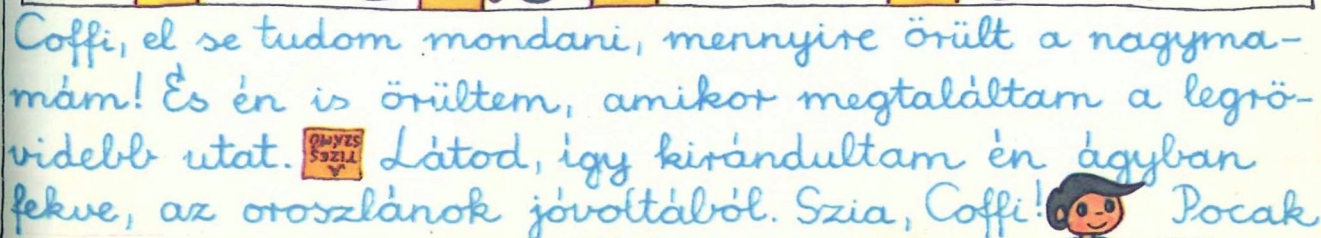 Coffi, el se tudom mondani, mennyire örült a nagyma-
mám! És én is örültem, amikor megtaláltam a legrö-
videbb utat. A TIZES SZÁMO Látod, így kirándultam én ágyban
fekve, az oroszlánok jóvoltából. Szia, Coffi! Pocak